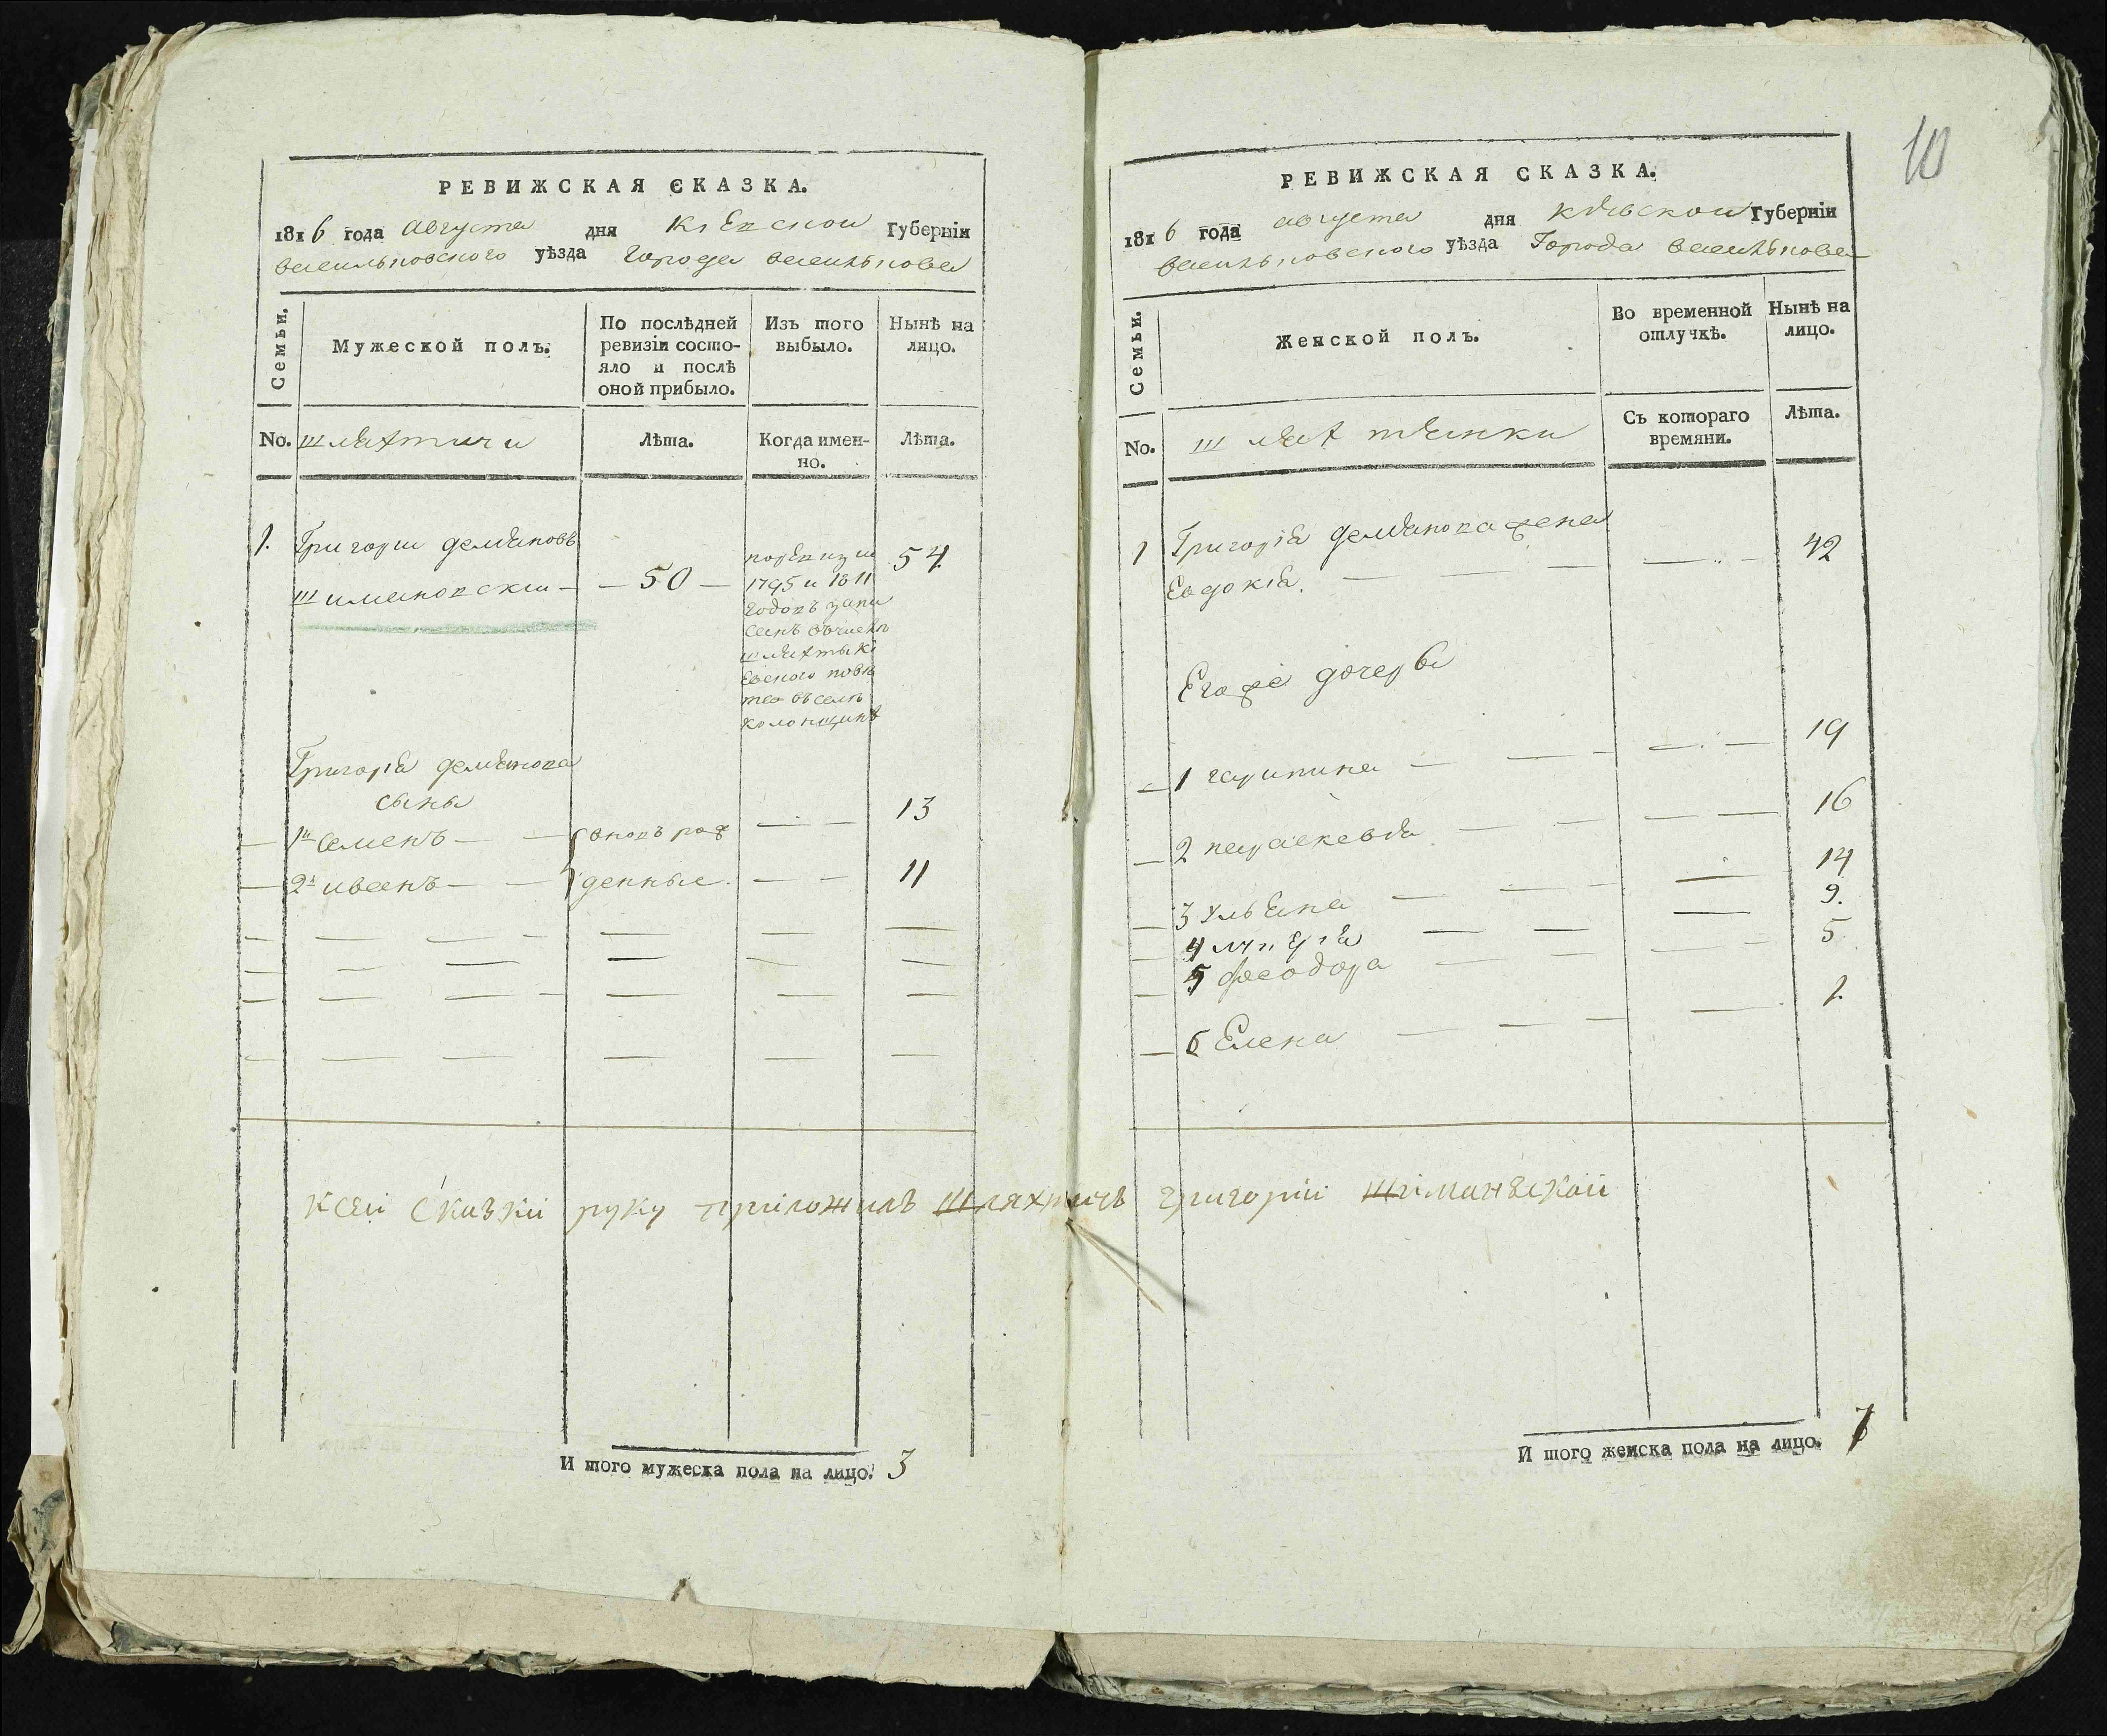 РЕВИЖСКАЯ СКАЗКА.
1816 года августа дня Кіевской Губерніи
васильковского уѣзда города василькова
Семьи.
Мужеской полъ.
По послѣдней ревизіи состо-
яло и послѣ оной прибыло.
Изъ того выбыло.
Нынѣ на лицо.
No. шляхтичи Лѣта. Когда имен-
но. Лѣта.
1. Григори демяновъ
шимановски — 50 — 54
поревизи
1795 и 1811
годовъ запи
санъ вчислѣ
шляхты Ки
евского повѣ
та въ селѣ
колонщинѣ
Григорія демянова
сыны
1й семенъ вновь рож 13
2й иванъ денные. 11
И того мужеска пола на лицо. 3
10
РЕВИЖСКАЯ СКАЗКА.
1816 года августа дня кіевской Губерніи
васильковского уѣзда Города василькова
Семьи.
Женской полъ.
Во временной отлучкѣ.
Нынѣ на лицо.
No. шляхтянки Съ котораго
времяни. Лѣта.
1 Григорія демянова жена
Евдокія. 42
Егоже дочерѣ
1 гарипина 19
2 параскевія 16
3 ульяна 14
4 9.
5 феодора 5
6 Елена 1
ксеи сказки руку приложилъ шляхтичъ григории шиманвский
И того женска пола на лицо. 7